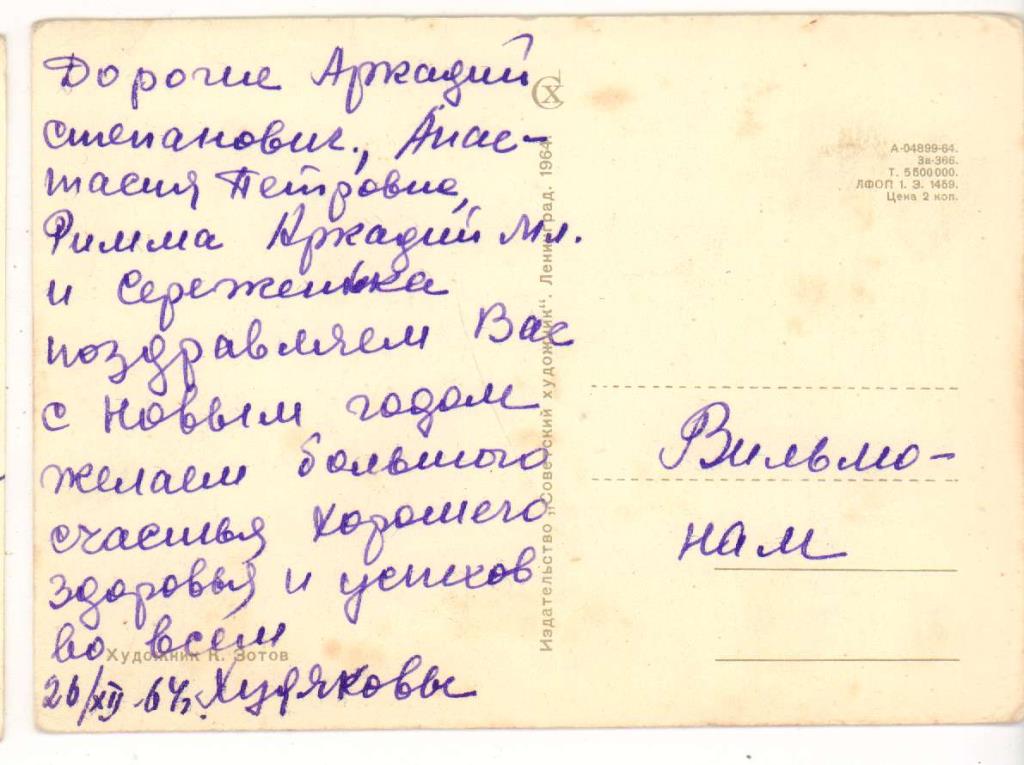 Дорогие Аркадий
степанович., Анас-
тасия Петровна,
Римма Аркадий мл.
и Сереженька
поздравляем Вас
с Новым годом
желаем большого
счастья хорошего
здоровья и успехов
во всем
26/XII-64г. Худяковы
Художник К. Зотов
Издательство „Советский художник“. Ленинград. 1964
А-04899-64.
За-366.
Т. 5500000.
ЛФОП 1. З. 1459.
Цена 2 коп.
Вильмо-
нам